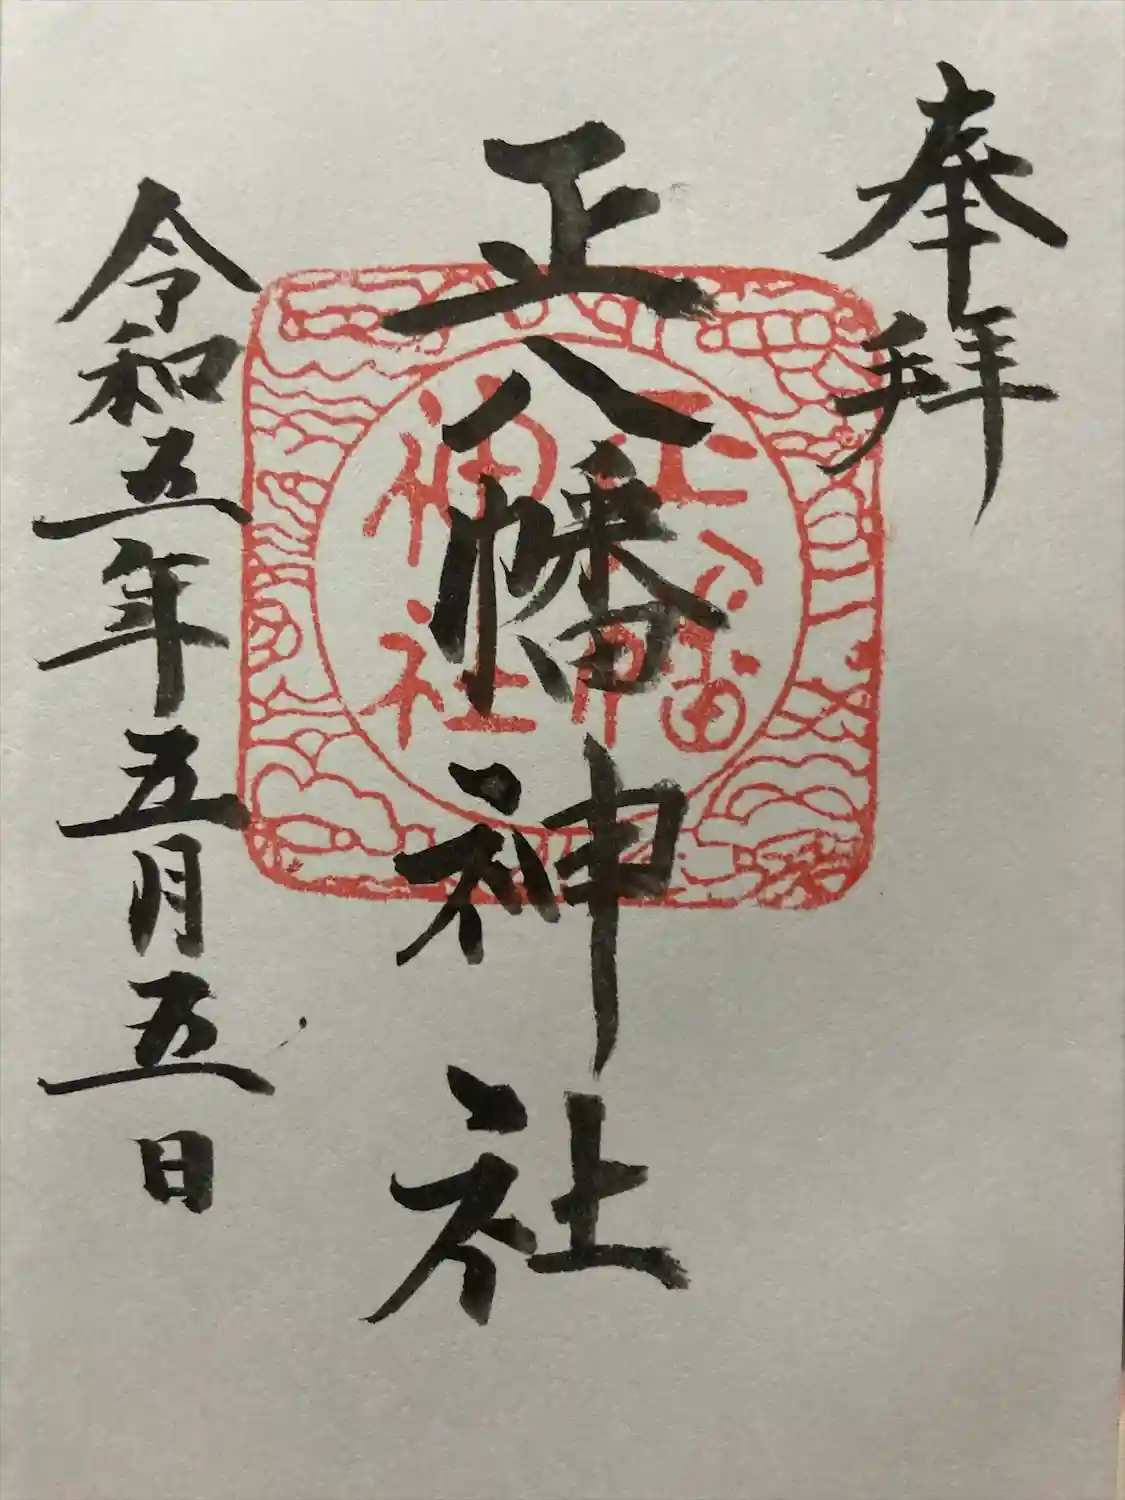 奉拜
正八幡神社
正八幡
神社
令和五年五月五日